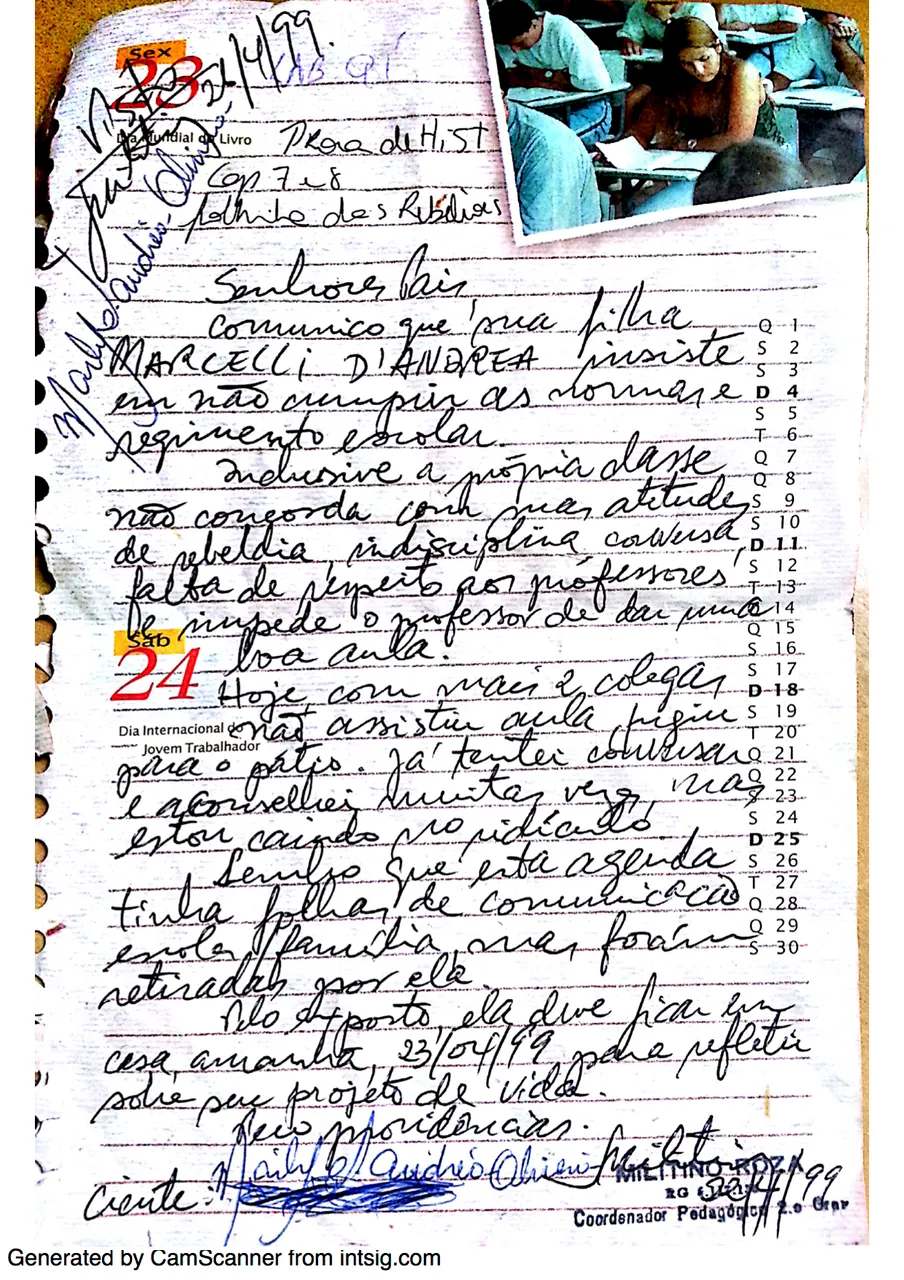 Sex
23
Dia Mundial do Livro
Visto 26/4/99.
Prova de HiST
Cap 7 e 8
folhinha das Rebeliões
Senhores Pais,
Comunico que sua filha
MARCELLi D'ANDREA insiste
em não cumprir as normas e
regimento escolar.
Inclusive a própria classe
não concorda com suas atitudes
de rebeldia, indisciplina, conversa,
falta de respeito aos professores
e impede o professor de dar uma
boa aula.
Sáb
24
Dia Internacional do
Jovem Trabalhador
Hoje, com mais 2 colegas
não assistiu aula fugiu
para o pátio. Já tentei conversar
e aconselhei muitas vezes, mas
estou caindo no ridículo.
Lembro que esta agenda
tinha folhas de comunicação
escola/família, mas foram
retiradas por ela.
Pelo exposto, ela deve ficar em
casa amanhã, 23/04/99 para refletir
sobre seu projeto de vida.
Peço providências.
Ciente:
MILITINO ROZA
RG
22/4/99
Coordenador Pedagógico 2.o Grau
Q 1
S 2
S 3
D 4
S 5
T 6
Q 7
Q 8
S 9
S 10
D 11
S 12
T 13
Q 14
Q 15
S 16
S 17
D 18
S 19
T 20
Q 21
Q 22
S 23
S 24
D 25
S 26
T 27
Q 28
Q 29
S 30
Generated by CamScanner from intsig.com